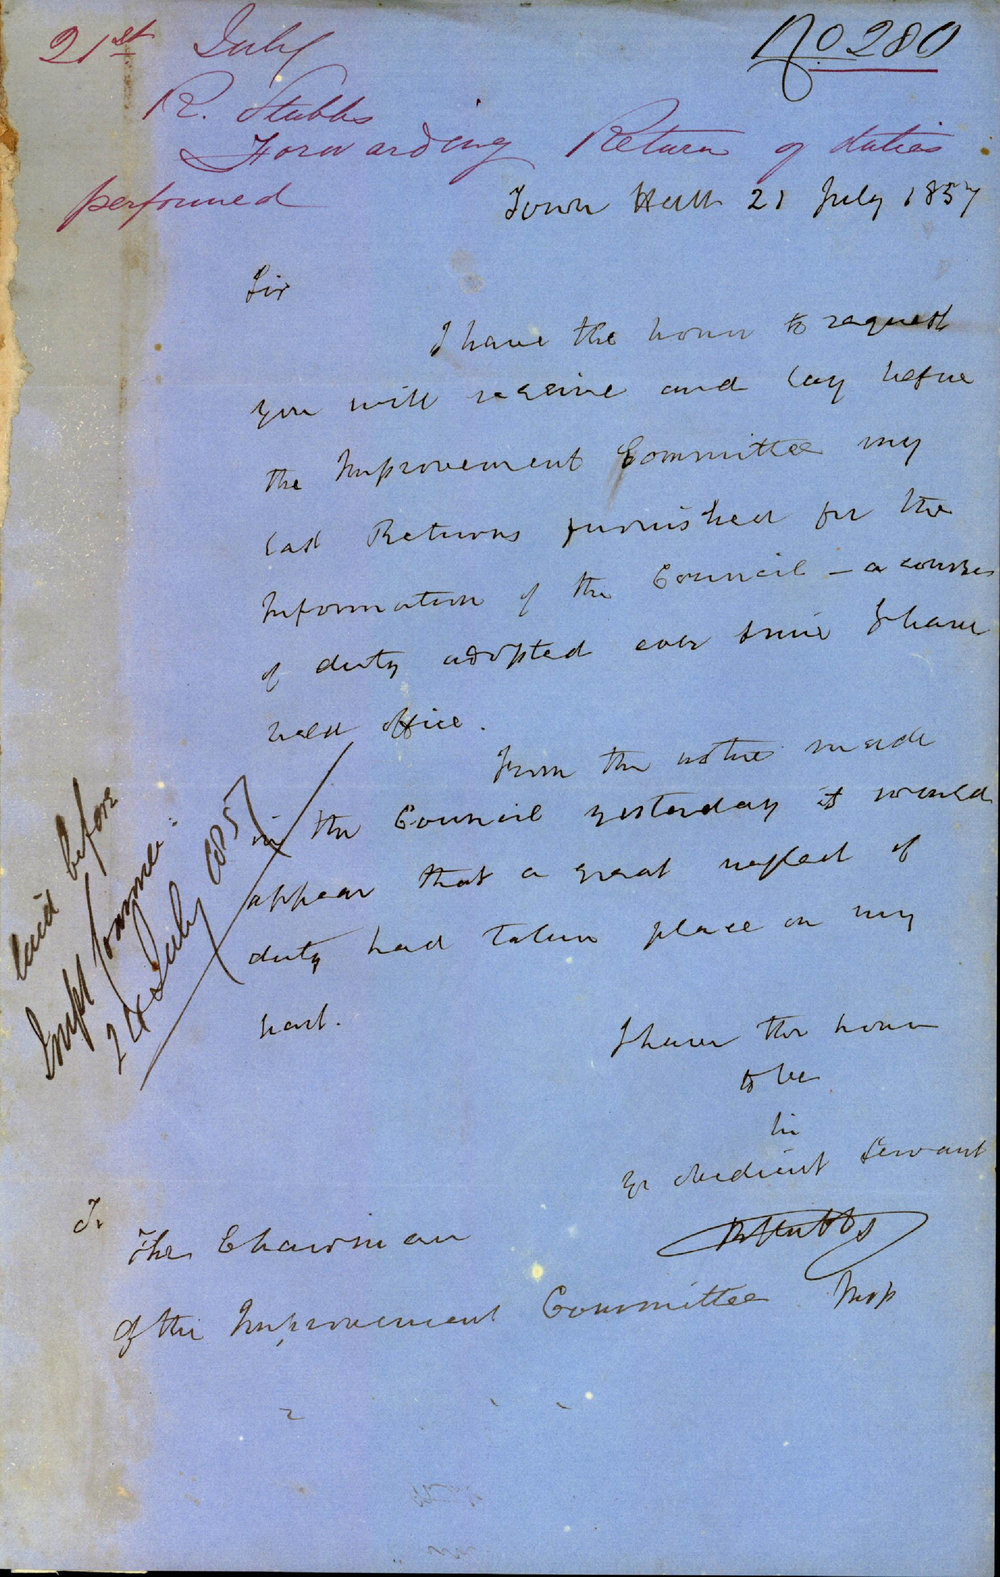 No 280
21st July
R. Stubbs
Forwarding Return of duties
performed
Town Hall 21 July 1857
Sir
I have the honor to request
you will receive and lay before
the Improvement Committee my
last Returns furnished for the
Information of the Council – a course
of duty adopted ever since I have
held office.
From the notice made
in the Council yesterday it would
appear that a great neglect of
duty had taken place on my
part.
I have the honor
to be
Sir
Yr obedient Servant
R Stubbs
Insp
To
The Chairman
of the Improvement Committee
laid before
Impt Commee:
24 July 1857